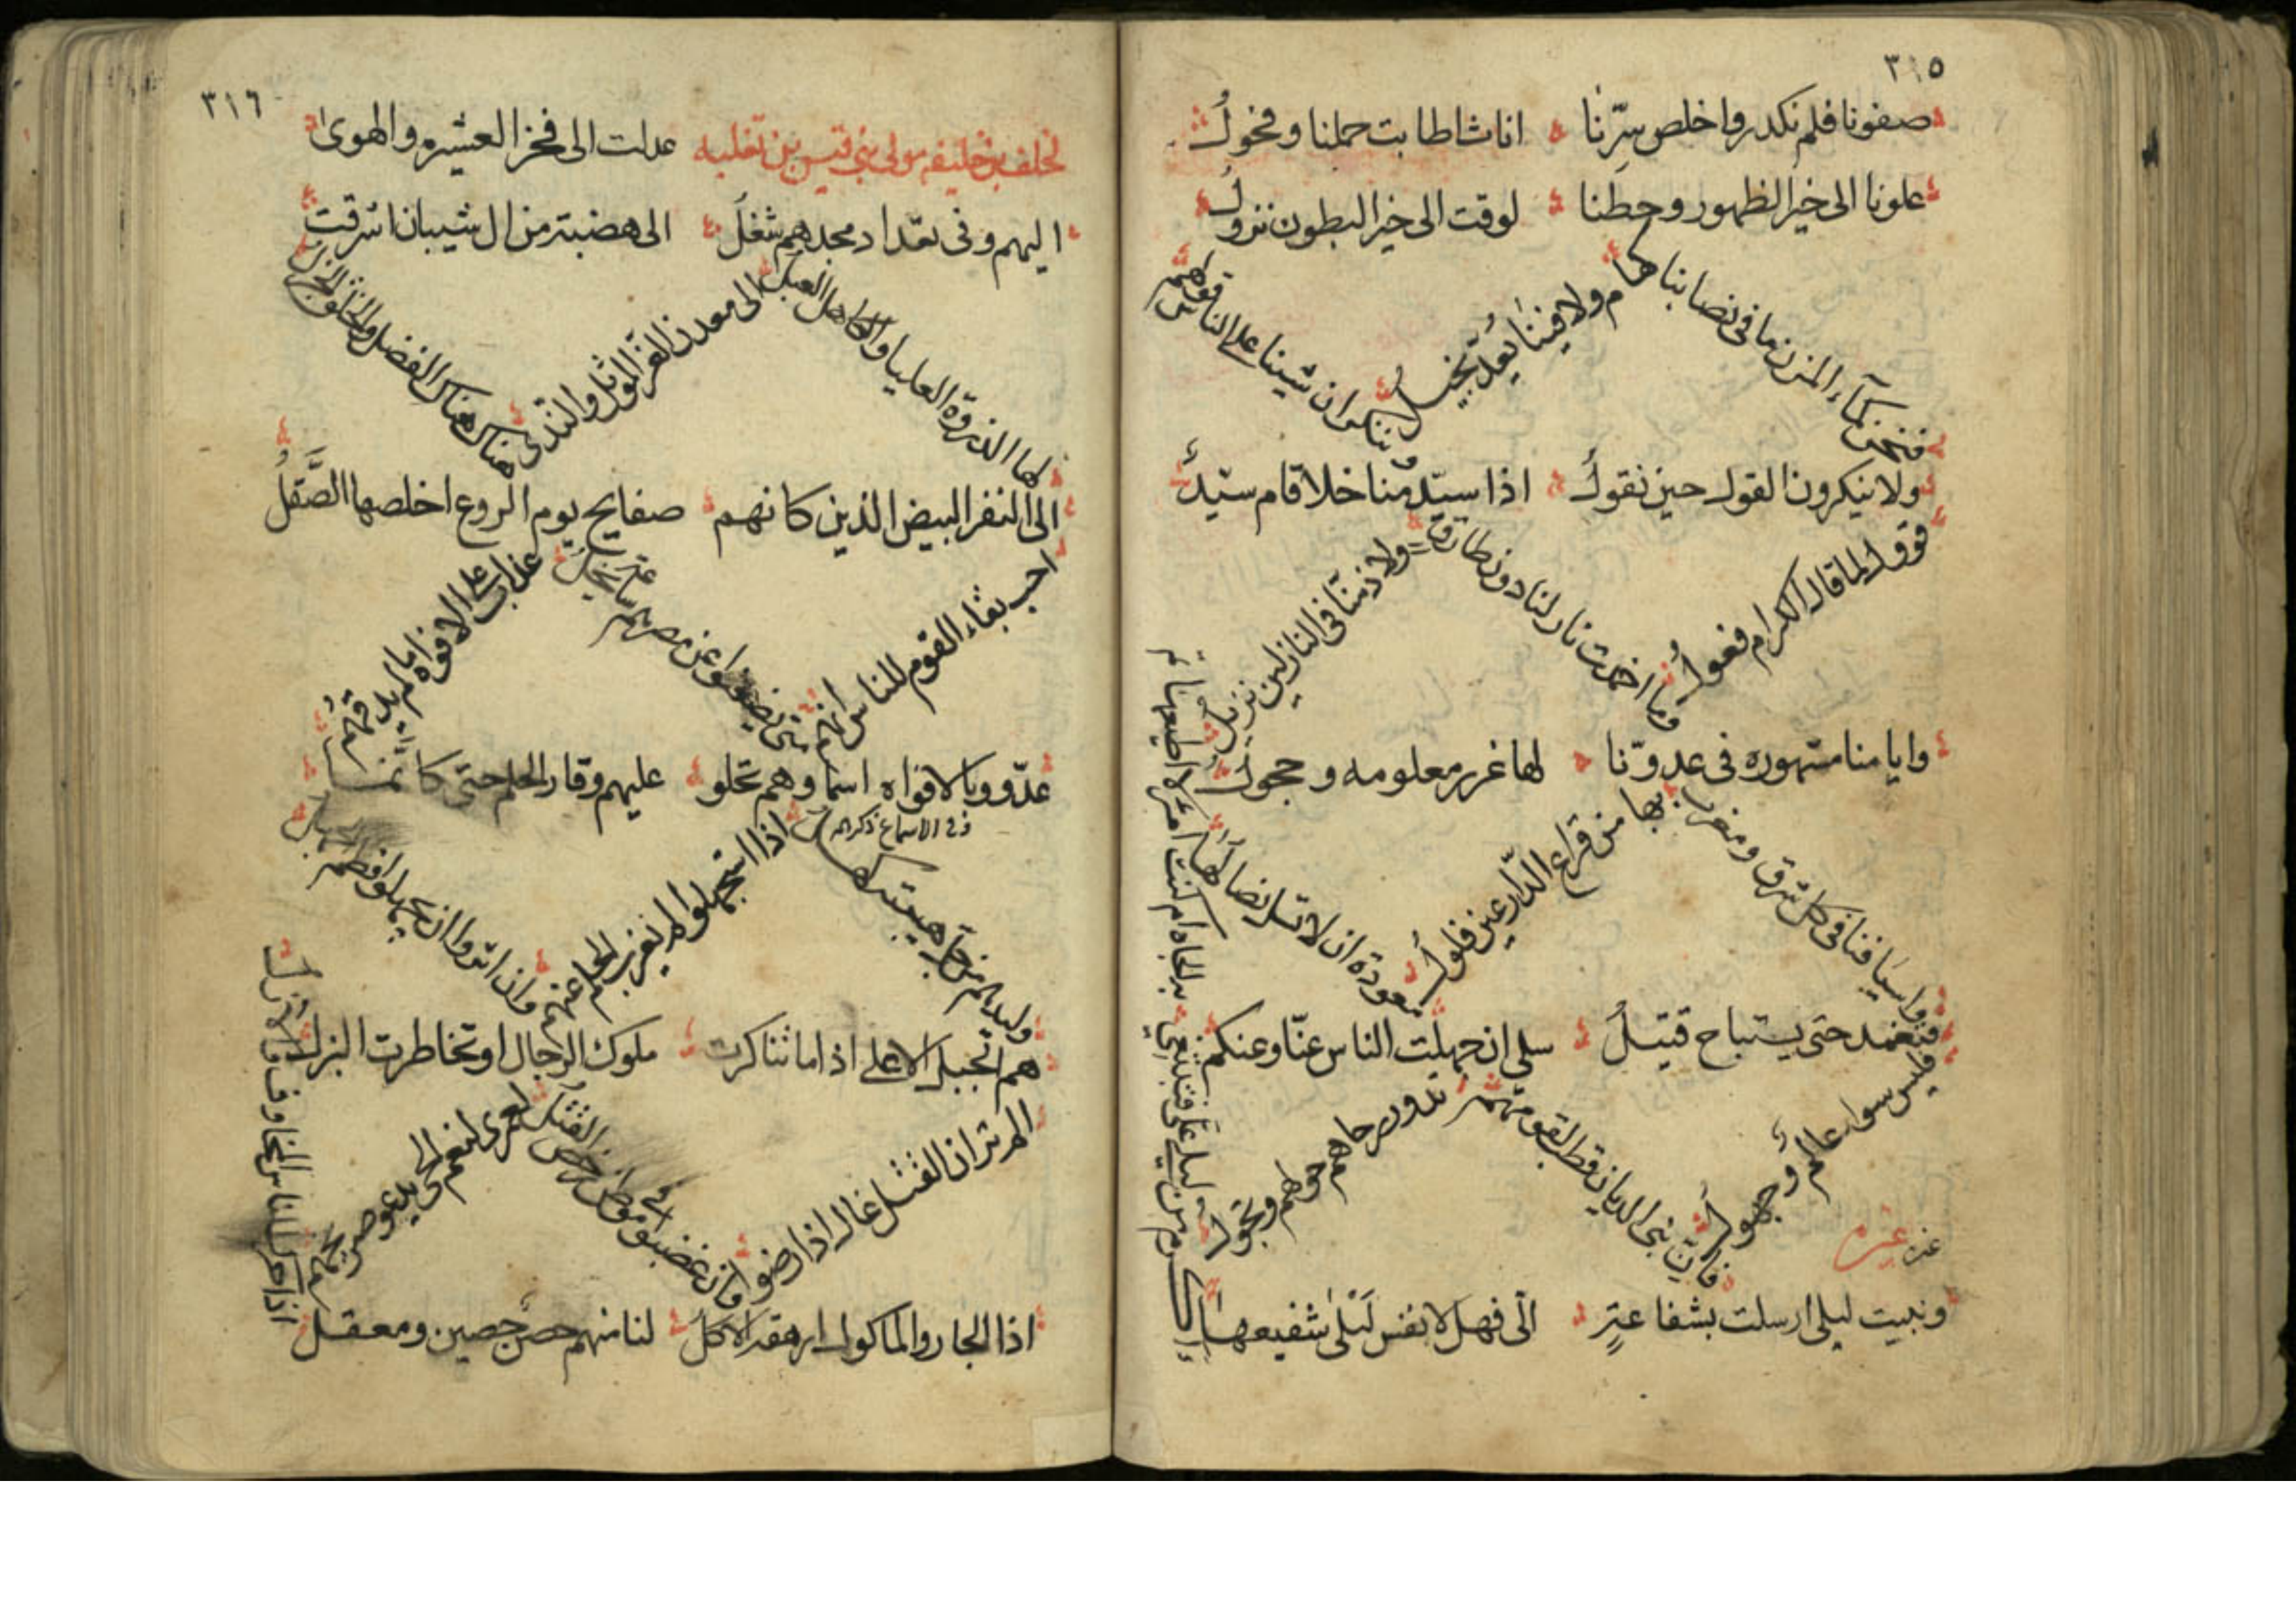 ٣١٥
صفونا فلم نكدر واخلص سرّنا اناث اطابت حملنا وفحولُ
علونا الى خير الظهور وحطنا لوقت الى خير البطون نزولُ
فنحن كمآء المزن ما فى نصابنا
كهام ولا فينا يُعدّ بخيلُ
وننكر ان شينا على الناس قولهم
ولا ينكرون القول حين نقولُ اذا سيّد منا خلا قام سيّدٌ
قوول لما قال الكرام فعولُ
وما اخمدت نار لنا دون طارق
ولا ذمنا فى النازلين نزيلُ
وايامنا مشهوره فى عدوّنا لها غرر معلومه وحجولُ
واسيافنا فى كل شرق ومغرب
بها من قراع الدّارعين فلولُ
معودة ان لا تسل نصالها
فتغمد حتى يستباح قتيلُ سلى ان جهلت الناس عنّا وعنكم
فليس سواء عالمٌ وجهولُ
فان بنى الديان قطب لقومهم
تدور رحاهم حولهم وتجولُ
غيره
ونبيت ليلى ارسلت بشفاعةٍ الّى فهلا نفس ليلى شفيعها
أأكرم من ليلى علىّ فتبتغى
به الجاه ام كنت امرءً لا اطيعها
٣١٦
لخلف بن خليفه مولى بنى قيس بن ثعلبه عدلت الى فخر العشيره والهوىٰ
اليهم وفى تعداد مجدهم شغلُ الى هضبة من ال شيبان اشرقت
لها الذروة العليا والكاهل العبلُ
الى معدن العز الموثل والندى
هناك هناك الفضل والخلق الجزلُ
الى النفر البيض الذين كانهم صفايح يوم الروع اخلصها الصَّقلُ
احب بقاء القوم للناس انهم
متى يضعنوا عن مصرهم ساعة يخلُ
عذاب على الافواه ما لم يذقهمُ
عدّو وبالافواه اسما وهم تحلو عليهم وقار الحلم حتى كانما
وليدهم من اجل هيبته كهلُ
فى الاسماع ذكراهم
اذا استجهلوا لم يغرب الحلم عنهم
وان اثروا ان يجهلوا عظم الجهلُ
هم الجبل الاعلى اذا ما تناكرت ملوك الرجال او تخاطرت البزلُ
الم تر ان القتل غال اذا رضوا
وان غضبوا فى موطن رخص القتلُ
لعمرى لنعم الحى يدعو صريخهم
اذا الجار والماكول ارهقه الاكلُ لنا منهم حصن حصين ومعقل
اذا حرك الناس المخاوف والازلُ